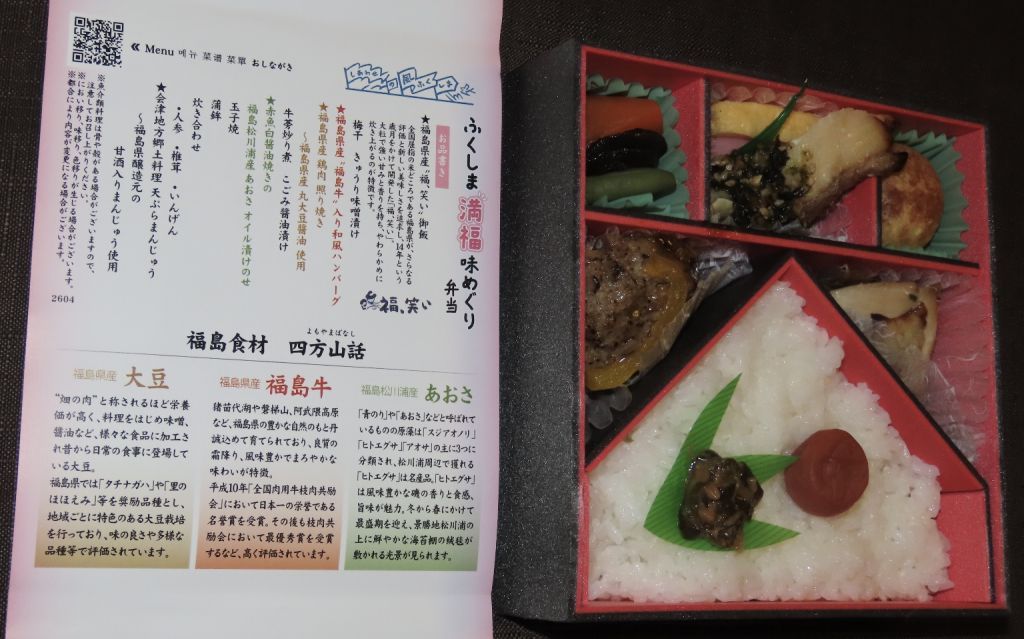 « Menu 메뉴 菜谱 菜單 おしながき
しあわせの風ふくしま
ふくしま満福味めぐり
弁当
福、笑い
お品書き
★福島県産“福、笑い”御飯
全国屈指の米どころである福島県が、さらなる
評価と新しい美味しさを追求し、14年という
歳月をかけて開発した「福、笑い」。
大粒で強い甘みと香りを持ち、やわらかめに
炊き上がるのが特徴です。
梅干 きゅうり味噌漬け
★福島県産“福島牛”入り和風ハンバーグ
★福島県産鶏肉 照り焼き
～福島県産 丸大豆醤油 使用
牛蒡炒り煮 こごみ醤油漬け
★赤魚白醤油焼きの
福島松川浦産 あおさ オイル漬けのせ
玉子焼
蒲鉾
炊き合わせ
・人参 ・椎茸 ・いんげん
★会津地方郷土料理 天ぷらまんじゅう
～福島県醸造元の
甘酒入りまんじゅう使用
※魚介類料理は骨や殻がある場合がございますので、
注意してお召し上がりください。
※におい移り、味移り、色移りが生じる場合がございます。
※都合により内容が変更になる場合がございます。
2604
福島食材 四方山話
よもやまばなし
福島県産 大豆
“畑の肉”と称されるほど栄養
価が高く、料理をはじめ味噌、
醤油など、様々な食品に加工さ
れ昔から日常の食事に登場して
いる大豆。
福島県では「タチナガハ」や「里の
ほほえみ」等を奨励品種とし、
地域ごとに特色のある大豆栽培
を行っており、味の良さや多様な
品種等で評価されています。
福島県産 福島牛
猪苗代湖や磐梯山、阿武隈高原
など、福島県の豊かな自然のもと丹
誠込めて育てられており、良質の
霜降り、風味豊かでまろやかな
味わいが特徴。
平成10年「全国肉用牛枝肉共励
会」において日本一の栄誉である
名誉賞を受賞。その後も枝肉共
励会において最優秀賞を受賞
するなど、高く評価されています。
福島松川浦産 あおさ
「青のり」や「あおさ」などと呼ばれて
いるものの原藻は「スジアオノリ」
「ヒトエグサ」「アオサ」の主に3つに
分類され、松川浦周辺で獲れる
「ヒトエグサ」は名産品。「ヒトエグサ」
は風味豊かな磯の香りと食感、
旨味が魅力。冬から春にかけて
最盛期を迎え、景勝地松川浦の
上に鮮やかな海苔棚の絨毯が
敷かれる光景が見られます。